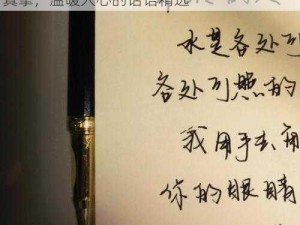 真挚，温暖人心的话语精选
水是各处可
各处可照的
我用手去
你的眼睛